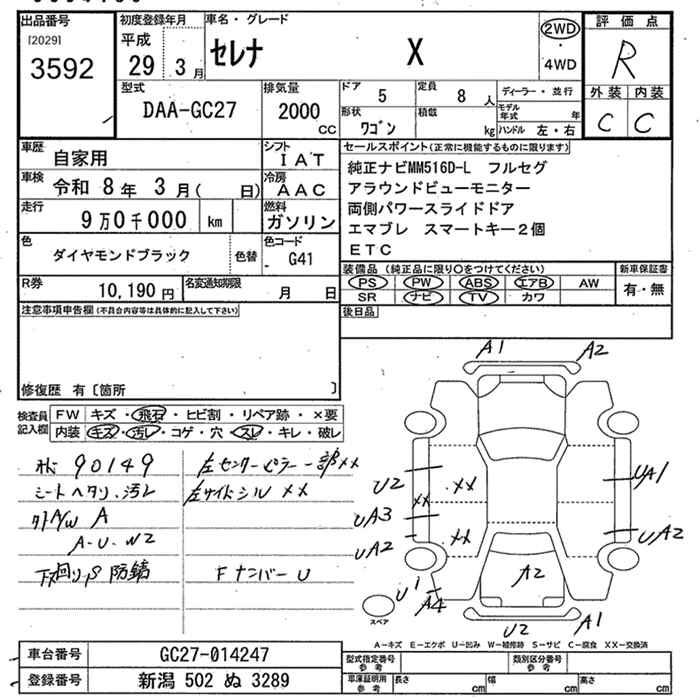 出品番号
[2029]
3592
初度登録年月
平成
29年 3月
車名・グレード
セレナ X
2WD
・
4WD
評価点
R
外装 内装
C C
型式
DAA-GC27
排気量
2000
CC
ドア
5
定員
8 人
形状
ワゴン
積載
kg
ディーラー・並行
モデル年式 年
ハンドル 左・右
車歴
自家用
シフト
IAT
車検
令和 8年 3月( 日)
冷房
AAC
走行
9万0千000 km
燃料
ガソリン
色
ダイヤモンドブラック
色替
色コード
G41
R券
10,190 円
名変通知期限
月 日
セールスポイント(正常に機能するものに限ります)
純正ナビMM516D-L フルセグ
アラウンドビューモニター
両側パワースライドドア
エマブレ スマートキー2個
ETC
装備品(純正品に限り○をつけてください)
PS PW ABS エアB AW
SR ナビ TV カワ
新車保証書
有・無
後日品
注意事項申告欄(不具合内容等は具体的に記入して下さい)
修復歴 有〔箇所 〕
検査員記入欄
FW キズ・飛石・ヒビ割・リペア跡・×要
内装 キズ・汚レ・コゲ・穴・スレ・キレ・破レ
90149
シートヘタリ、汚レ
外A/W A
A-U-W2
下回りS 防錆
左センターピラー一部××
左サイドシル ××
Fナンバー U
A1
A2
U2
××
××
UA3
UA2
××
UA1
UA2
U1
A4
A2
U2
A1
スペア
A-キズ E-エクボ U-凹み W-補修跡 S-サビ C-腐食 XX-交換済
車台番号
GC27-014247
登録番号
新潟 502 ぬ 3289
型式指定番号
参考
類別区分番号
参考
車庫証明用
参考
長さ cm
幅 cm
高さ cm